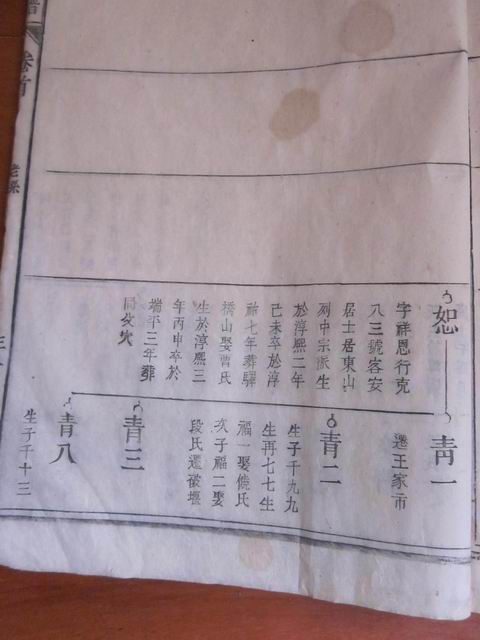 恕
字祥恩行克
八三號客安
居士居東山
列中宗派生
於淳熙二年
己未卒於淳
祐七年葬驛
橋山娶曹氏
生於淳熙三
年丙申卒於
端平三年葬
同父穴
青一
遷王家市
青二
生子千九九
生再七七生
福一娶饒氏
次子福二娶
段氏遷葭堰
青三
青八
生子千十三
卷首